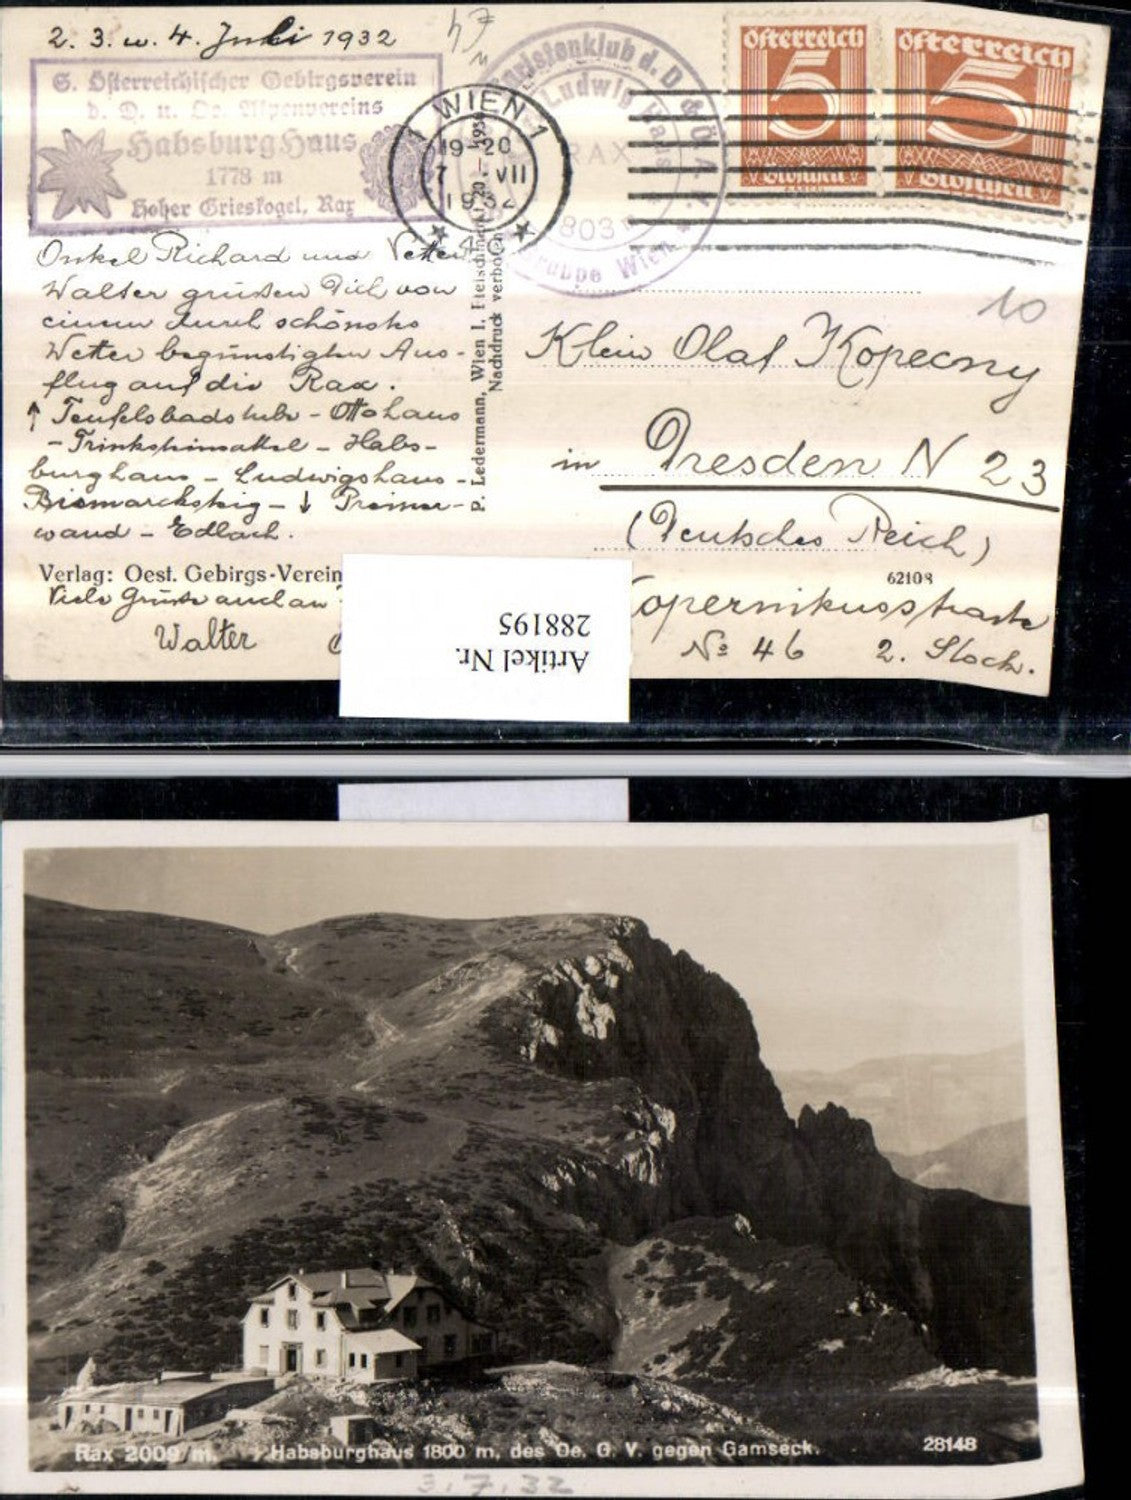 2. 3. u. 4. Juli 1932
S. Österreichischer Gebirgsverein
d. D. u. Oe. Alpenvereins
Habsburg Haus
1778 m
Hoher Grieskogel, Rax
1 WIEN 1
19-20
7 VII
1932
Touristenklub d. D & Ö. A. V.
Ludwig Haus
RAX
1803 m
Gruppe Wien
Österreich
5
Groschen
Österreich
5
Groschen
Onkel Richard und Vetter
Walter grüßen Dich von
einem durch schönstes
Wetter begünstigten Aus-
flug auf die Rax.
↑ Teufelsbadstube - Ottohaus
- Trinksteinsattel - Habs-
burghaus - Ludwigshaus -
Bismarcksteig - ↓ Preiner-
wand - Edlach.
Verlag: Oest. Gebirgs-Verein
Viele Grüße auch an
Walter
P. Ledermann, Wien I, Fleischmarkt 20 - 1931
Nachdruck verboten
10
Klein Olaf Kopecny
in Dresden N 23
(Deutsches Reich)
62108
Kopernikusstraße
No 46 2. Stock.
Artikel Nr.
288195
Rax 2009 m. Habsburghaus 1800 m, des Oe. G. V. gegen Gamseck.
28148
3.7.32